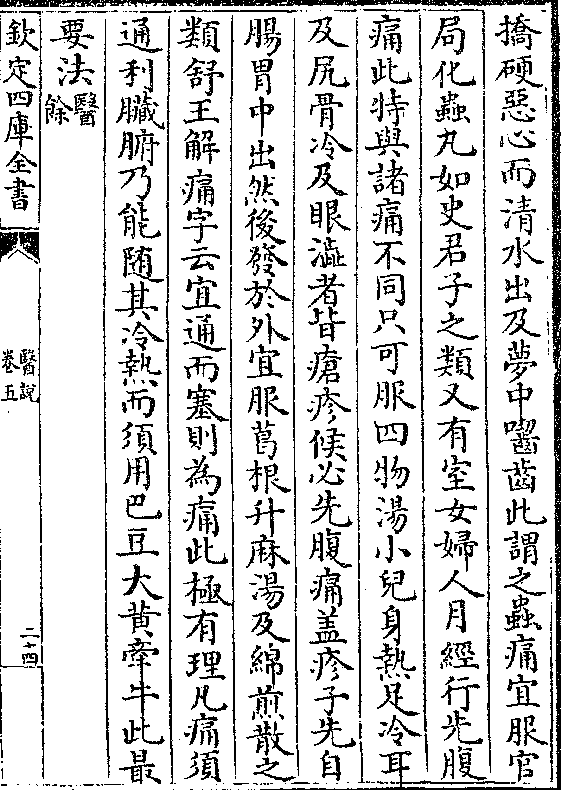 撟硬惡心而清水出及夢中嚙齒此謂之蟲痛宜服官
局化蟲丸如史君子之類又有室女婦人月經行先腹
痛此特與諸痛不同只可服四物湯小兒身熱足冷耳
及尻骨冷及眼澁者皆瘡疹候必先腹痛盖疹子先自
腸胃中出然後發於外宜服葛根升麻湯及綿煎散之
類舒王解痛字云宜通而塞則為痛此極有理凡痛須
通利臟腑乃能随其冷熱而須用巴豆大黄牽牛此最
要法醫餘
欽定四庫全書
醫説
卷五
二十四